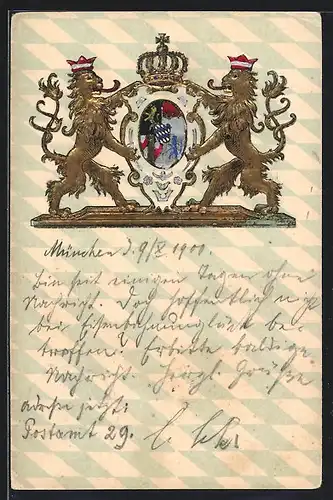 München d. 9/X 1900.
Bin seit einigen Tagen ohne
Nachricht. Doch hoffentlich nicht
bei Eisenbahnunglück be-
troffen? Erbitte baldige
Nachricht. Herzl. Grüße
adresse jetzt:
Postamt 29.